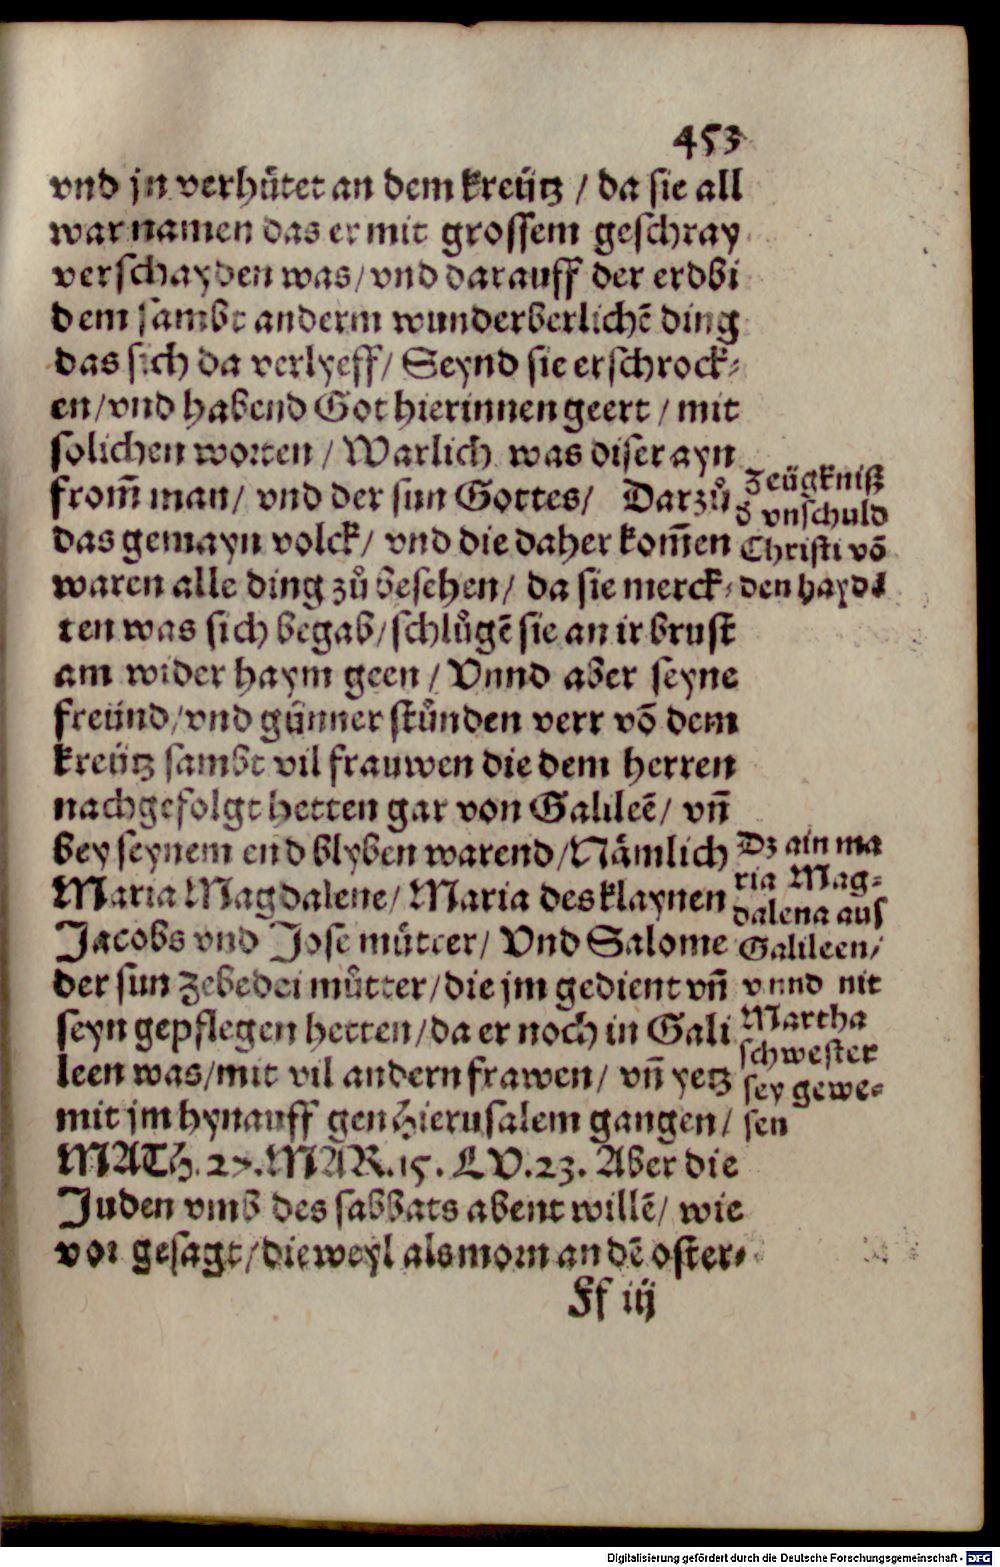 453
vnd jn verhütet an dem kreütz / da sie all
war namen das er mit grossem geschray
verschayden was / vnd darauff der erdbi
dem sambt anderm wunderberlichē ding
das sich da verlyeff / Seynd sie erschrock⸗
en / vnd habend Got hierinnen geert / mit
solichen worten / Warlich was diser ayn
from̄ man / vnd der sun Gottes / Darzů
das gemayn volck / vnd die daher kom̄en
waren alle ding zů besehen / da sie merck⸗
ten was sich begab / schlůgē sie an ir brust
am wider haym geen / Vnnd aber seyne
freünd / vnd günner stůnden verr vō dem
kreütz sambt vil frauwen die dem herren
nachgefolgt hetten gar von Galileē / vn̄
bey seynem end blyben warend / Nämlich
Maria Magdalene / Maria des klaynen
Jacobs vnd Jose můtter / Vnd Salome
der sun Zebedei můtter / die jm gedient vn̄
seyn gepflegen hetten / da er noch in Gali
leen was / mit vil andern frawen / vn̄ yetz
mit jm hynauff gen Hierusalem gangen /
MATH. 27. MAR. 15. LV. 23. Aber die
Juden vmb des sabbats abent willē / wie
vor gesagt / dieweyl als morn an dē oster⸗
Ff iij
Zeügkniß
d̄ vnschuld
Christi vō
den haydē
Dz ain ma
ria Mag⸗
dalena aus
Galileen /
vnnd nit
Martha
schwester
sey gewe⸗
sen
Digitalisierung gefördert durch die Deutsche Forschungsgemeinschaft - DFG